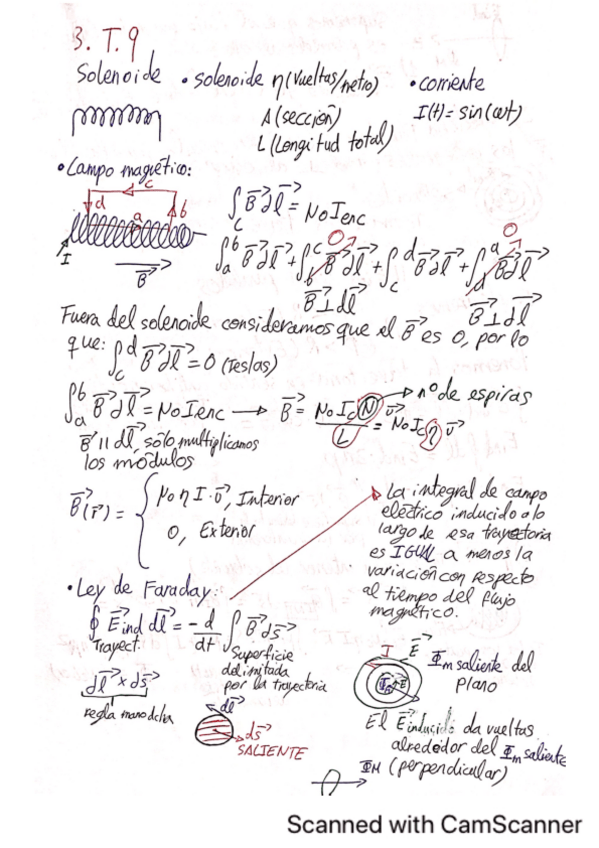 3. T.9
Solenoide • solenoide η (vueltas/metro) • corriente
A (sección) I(t) = sin(ωt)
L (Longitud total)
• Campo magnético:
c
d a b
I
B⃗
∫c B⃗ dl⃗ = μo Ienc
∫a^b B⃗ dl⃗ + ∫b^c B⃗ dl⃗ + ∫c^d B⃗ dl⃗ + ∫d^a B⃗ dl⃗
0 0
B⃗ ⊥ dl⃗ B⃗ ⊥ dl⃗
Fuera del solenoide consideramos que el B⃗ es 0, por lo
que: ∫c^d B⃗ dl⃗ = 0 (Teslas)
∫a^b B⃗ dl⃗ = μo Ienc → B⃗ = μo Ic N / L v⃗ = μo Ic η v⃗
nº de espiras
B⃗ || dl⃗, sólo multiplicamos
los módulos
B⃗(r⃗) = { μo η I · v⃗, Interior
0, Exterior
La integral de campo
eléctrico inducido a lo
largo de esa trayectoria
es IGUAL a menos la
variación con respecto
al tiempo del flujo
magnético.
• Ley de Faraday:
∮ E⃗ind dl⃗ = - d/dt ∫ B⃗ ds⃗
Trayect. Superficie
delimitada
por la trayectoria
dl⃗ × ds⃗
regla mano dcha
dl⃗
ds⃗
SALIENTE
I E⃗
Φm saliente del
plano
El E⃗ inducido da vueltas
alrededor del Φm saliente
ΦM (perpendicular)
Scanned with CamScanner